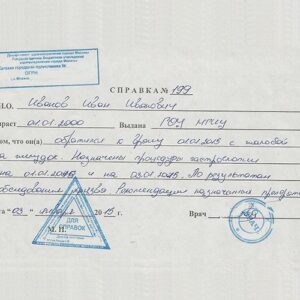 Департамент здравоохранения города Москвы
Государственное бюджетное учреждение
здравоохранения города Москвы
Детская городская поликлиника №
ОГРН
г. Москва
СПРАВКА № 199
И.О. Иванов Иван Иванович
зраст 01.01.2000 Выдана РФУ
ом, что он(а) обратился к врачу 01.01.2015 с жалобой
на желудок. Назначены процедуры гастроскопии
на 01.01.2015 и на 03.01.2015. По результатам
обследования Рекомендации назначенная
та "03" января 2015 Врач
М. П.
ДЛЯ
СПРАВОК